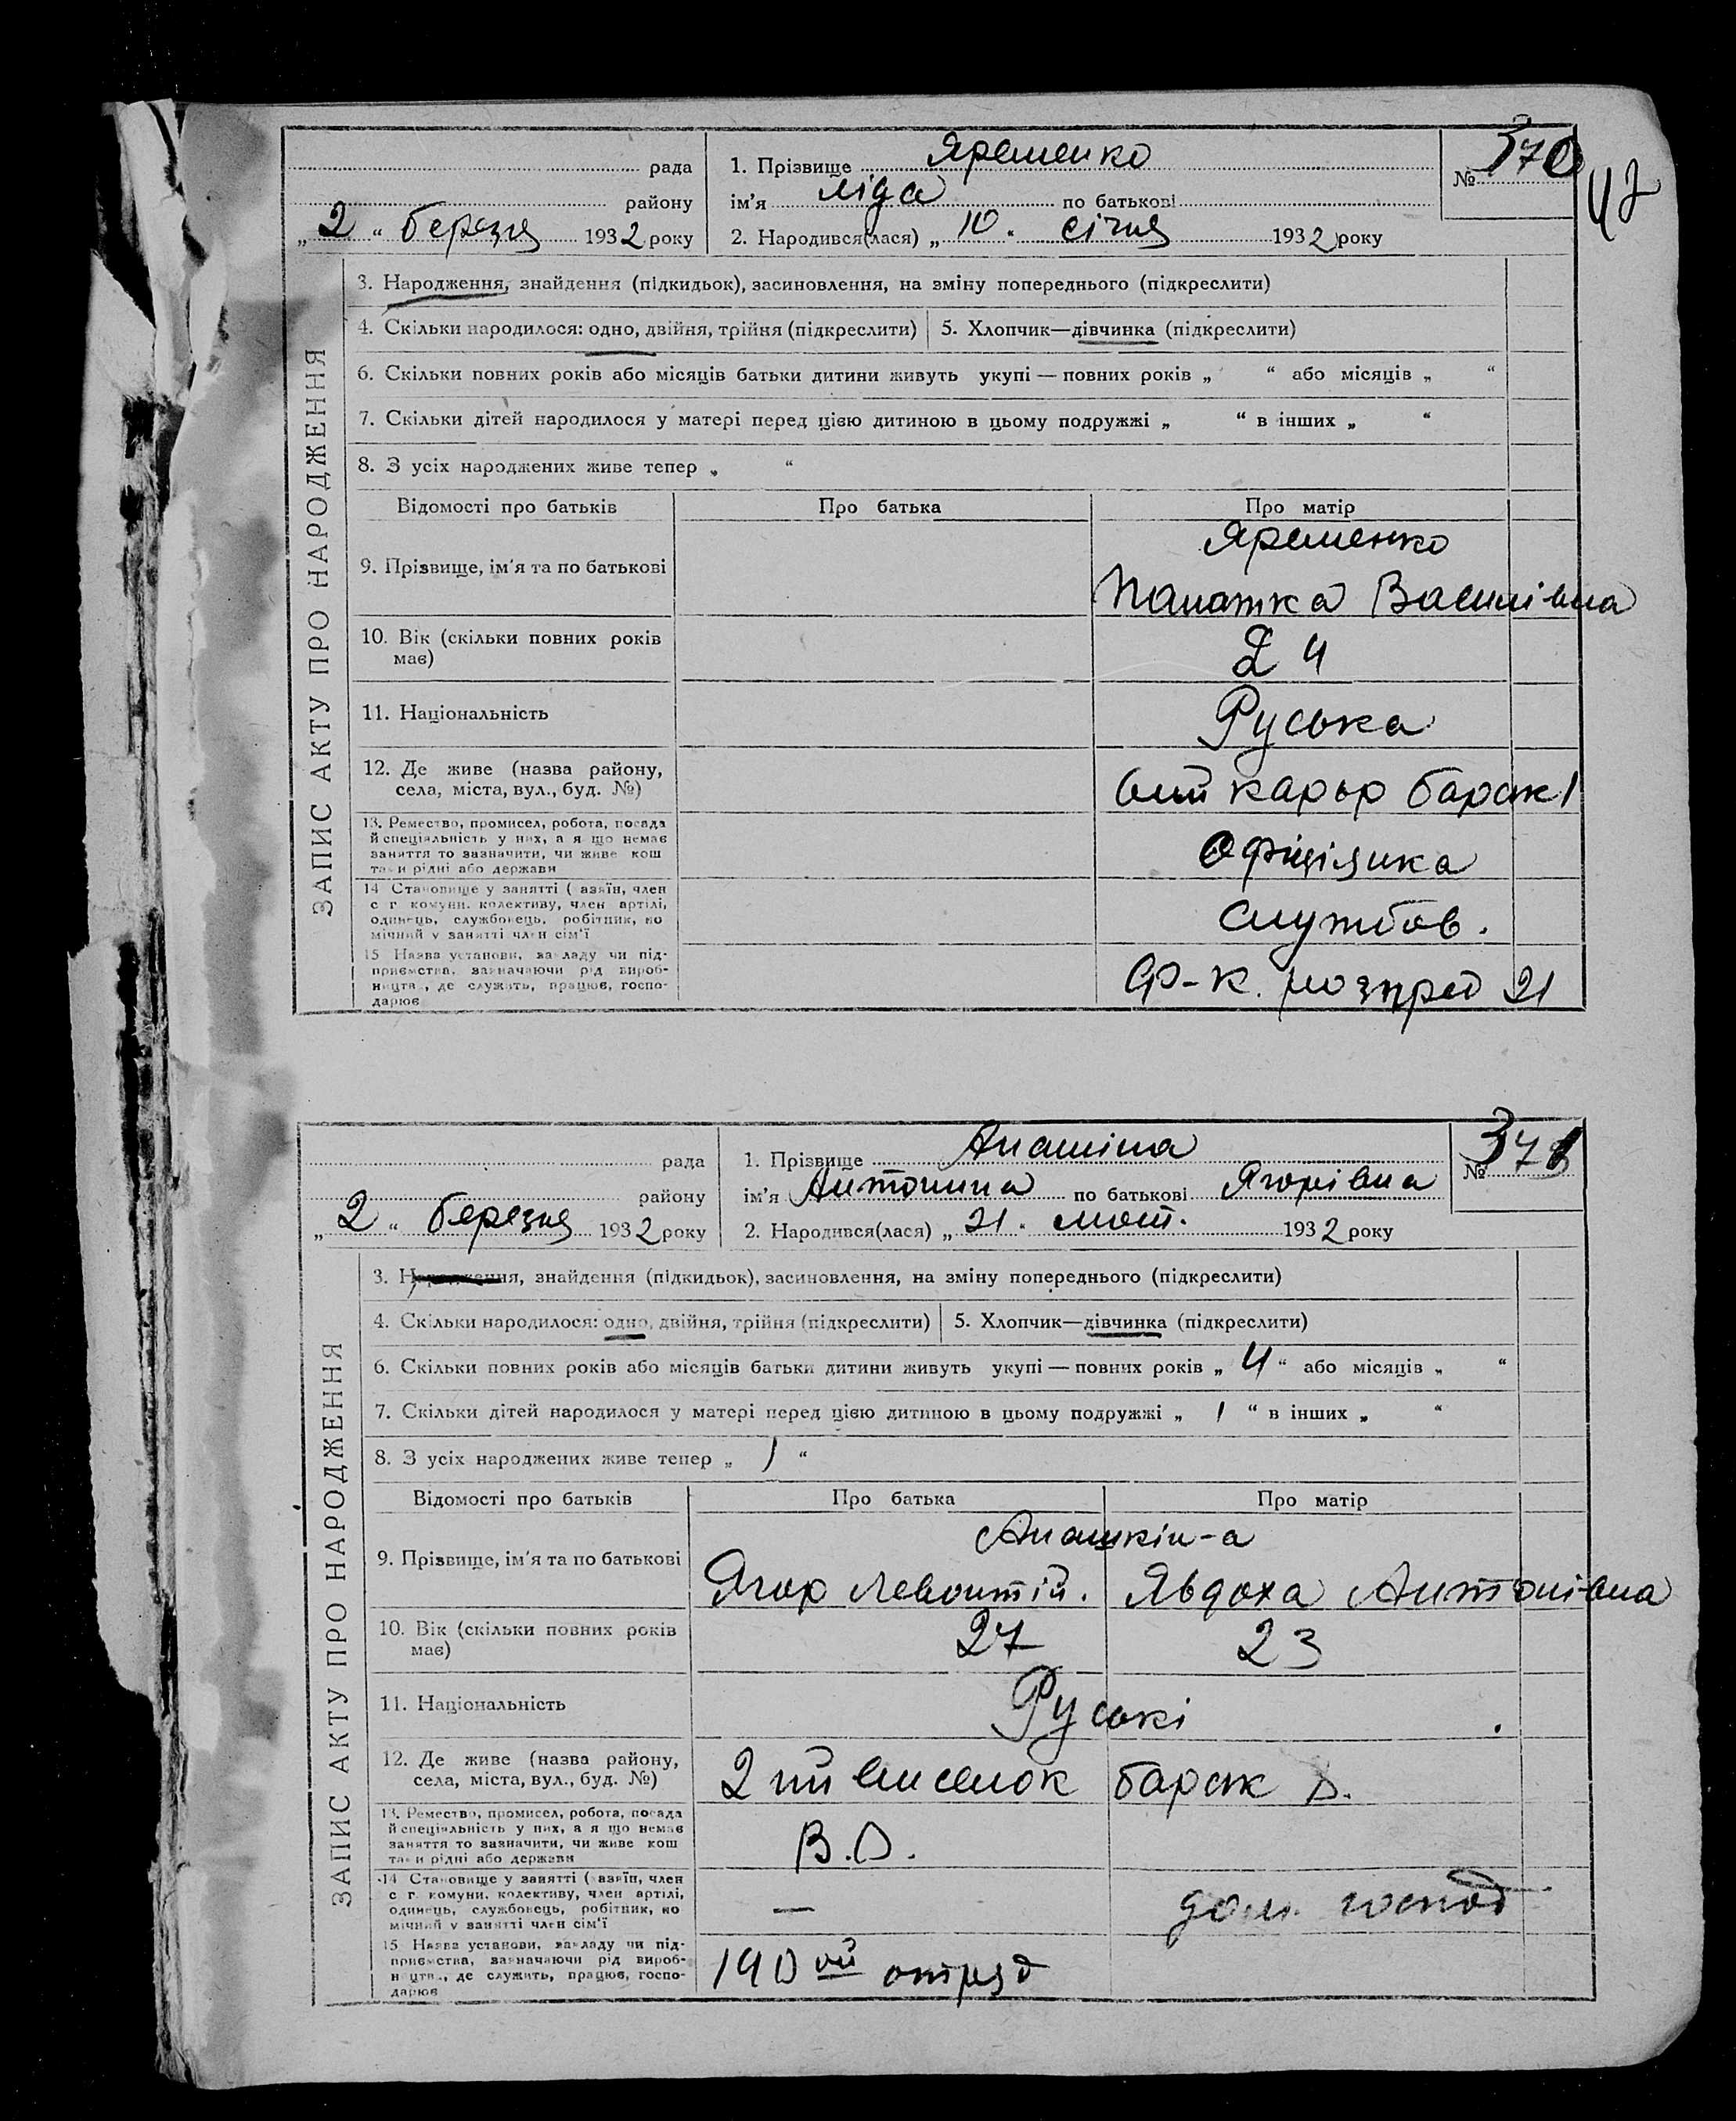 рада
1. Прізвище Яременко
№ 370
47
району
ім'я Ліда по батькові
„ 2 “ березня 1932 року
2. Народився(лася) „ 10 “ січня 1932 року
ЗАПИС АКТУ ПРО НАРОДЖЕННЯ
3. Народження, знайдення (підкидьок), засиновлення, на зміну попереднього (підкреслити)
4. Скільки народилося: одно, двійня, трійня (підкреслити)
5. Хлопчик—дівчинка (підкреслити)
6. Скільки повних років або місяців батьки дитини живуть укупі — повних років „ “ або місяців „ “
7. Скільки дітей народилося у матері перед цією дитиною в цьому подружжі „ “ в інших „ “
8. З усіх народжених живе тепер „ “
Відомості про батьків
Про батька
Про матір
9. Прізвище, ім'я та по батькові
Яременко
Василівна
10. Вік (скільки повних років
має)
24
11. Національність
Руська
12. Де живе (назва району,
села, міста, вул., буд. №)
карьр барак 1
13. Ремество, промисел, робота, посада
й спеціяльність у них, а я що немає
заняття то зазначити, чи живе кош
та и рідні або держави
Офіціянка
14 Становище у занятті ( азяїн, член
с г комуни, колективу, член артілі,
одинець, службовець, робітник, по
мічний у занятті член сім'ї
службов.
15 Назва установи, закладу чи під-
приємства, зазначаючи рід вироб-
ництв., де служить, працює, госпо-
дарює
Ф-к. розпред 21
рада
1. Прізвище Анашіна
№ 371
району
ім'я Антонина по батькові Ягорівна
„ 2 “ березня 1932 року
2. Народився(лася) „ 21 “ лют. 1932 року
ЗАПИС АКТУ ПРО НАРОДЖЕННЯ
3. Народження, знайдення (підкидьок), засиновлення, на зміну попереднього (підкреслити)
4. Скільки народилося: одно, двійня, трійня (підкреслити)
5. Хлопчик—дівчинка (підкреслити)
6. Скільки повних років або місяців батьки дитини живуть укупі — повних років „ 4 “ або місяців „ “
7. Скільки дітей народилося у матері перед цією дитиною в цьому подружжі „ 1 “ в інших „ “
8. З усіх народжених живе тепер „ 1 “
Відомості про батьків
Про батька
Про матір
9. Прізвище, ім'я та по батькові
Анашкін-а
Ягор Левонтій.
Явдоха Антонівна
10. Вік (скільки повних років
має)
27
23
11. Національність
Руські
12. Де живе (назва району,
села, міста, вул., буд. №)
2 ий виселок барак
13. Ремество, промисел, робота, посада
й спеціяльність у них, а я що немає
заняття то зазначити, чи живе кош
та и рідні або держави
В.О.
14 Становище у занятті ( азяїн, член
с г комуни, колективу, член артілі,
одинець, службовець, робітник, по
мічний у занятті член сім'ї
—
дом. господ
15 Назва установи, закладу чи під-
приємства, зазначаючи рід вироб-
ництв., де служить, працює, госпо-
дарює
140 ий отряд